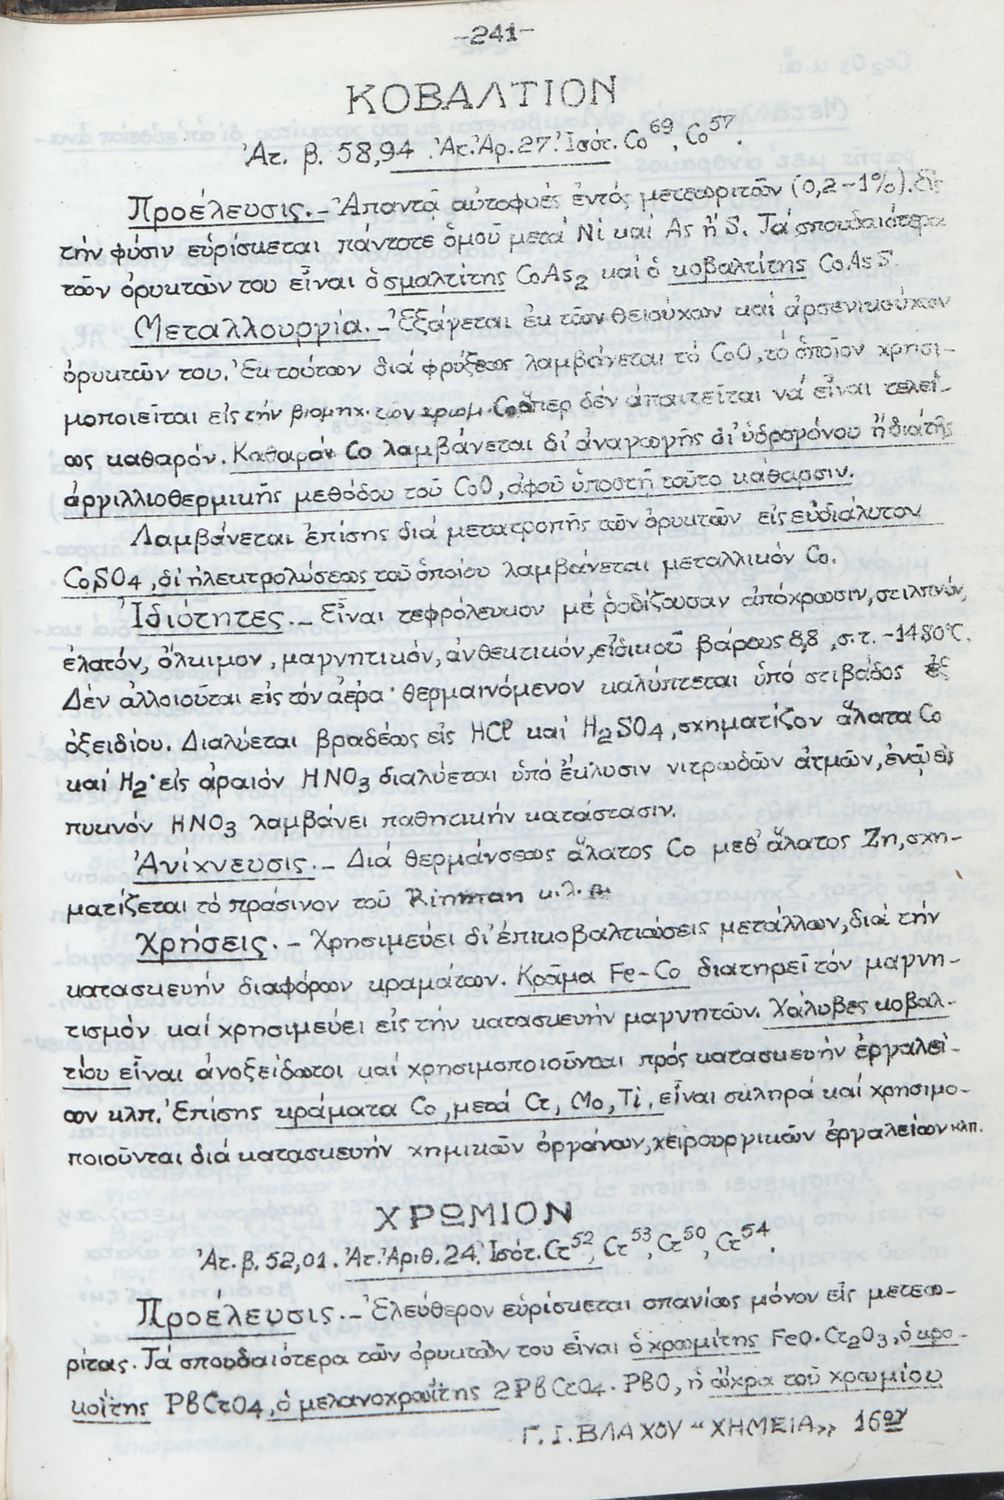 -241-
ΚΟΒΑΛΤΙΟΝ
Ἀτ. β. 58,94. Ἀτ. Ἀρ. 27. Ἰσότ. Co⁶⁹, Co⁵⁷.
Προέλευσις.- Ἀπαντᾶ αὐτοφυές ἐντός μετεωριτῶν (0,2-1%). Εἰς
τήν φύσιν εὑρίσκεται πάντοτε ὁμοῦ μετά Ni καί As ἤ S. Τά σπουδαιότερα
τῶν ὀρυκτῶν του εἶναι ὁ σμαλτίτης CoAs₂ καί ὁ κοβαλτίτης CoAsS.
Μεταλλουργία.- Ἐξάγεται ἐκ τῶν θειούχων καί ἀρσενικούχων
ὀρυκτῶν του. Ἐκ τούτων διά φρύξεως λαμβάνεται τό CoO, τό ὁποῖον χρησι-
μοποιεῖται εἰς τήν βιομηχ. τῶν χρωμ. ὅπερ δέν ἀπαιτεῖται νά εἶναι τελεί-
ως καθαρόν. Καθαρόν Co λαμβάνεται δι' ἀναγωγῆς δι' ὑδρογόνου ἤ διά τῆς
ἀργιλλιοθερμικῆς μεθόδου τοῦ CoO, ἀφοῦ ὑποστῆ τοῦτο καθαρσιν.
Λαμβάνεται ἐπίσης διά μετατροπῆς τῶν ὀρυκτῶν εἰς εὐδιάλυτον
CoSO₄, δι' ἠλεκτρολύσεως τοῦ ὁποίου λαμβάνεται μεταλλικόν Co.
Ἰδιότητες.- Εἶναι τεφρόλευκον μέ ροδίζουσαν ἀπόχρωσιν, στιλπνόν,
ἐλατόν, ὄλκιμον, μαγνητικόν, ἀνθεκτικόν, εἰδικοῦ βάρους 8,8, σ.τ. -1480°C.
Δέν ἀλλοιοῦται εἰς τόν ἀέρα· θερμαινόμενον καλύπτεται ὑπό στιβάδος ἐξ
ὀξειδίου. Διαλύεται βραδέως εἰς HCl καί H₂SO₄, σχηματίζον ἅλατα Co
καί H₂· εἰς ἀραιόν HNO₃ διαλύεται ὑπό ἔκλυσιν νιτρωδῶν ἀτμῶν, ἐνῷ εἰς
πυκνόν HNO₃ λαμβάνει παθητικήν κατάστασιν.
Ἀνίχνευσις.- Διά θερμάνσεως ἅλατος Co μεθ' ἅλατος Zn, σχη-
ματίζεται τό πράσινον τοῦ Rinman κ.λ.π.
Χρήσεις.- Χρησιμεύει δι' ἐπικοβαλτιώσεις μετάλλων, διά τήν
κατασκευήν διαφόρων κραμάτων. Κρᾶμα Fe-Co διατηρεῖ τόν μαγνη-
τισμόν καί χρησιμεύει εἰς τήν κατασκευήν μαγνητῶν. Χάλυβες κοβαλ-
τίου εἶναι ἀνοξείδωτοι καί χρησιμοποιοῦνται πρός κατασκευήν ἐργαλεί-
ων κλπ. Ἐπίσης κράματα Co, μετά Cr, Mo, Ti, εἶναι σκληρά καί χρησιμο-
ποιοῦνται διά κατασκευήν χημικῶν ὀργάνων, χειρουργικῶν ἐργαλείων κλπ.
ΧΡΩΜΙΟΝ
Ἀτ. β. 52,01. Ἀτ. Ἀριθ. 24. Ἰσότ. Cr⁵², Cr⁵³, Cr⁵⁰, Cr⁵⁴.
Προέλευσις.- Ἐλεύθερον εὑρίσκεται σπανίως μόνον εἰς μετεω-
ρίτας. Τά σπουδαιότερα τῶν ὀρυκτῶν του εἶναι ὁ χρωμίτης FeO·Cr₂O₃, ὁ κρο-
κοΐτης PBCrO₄, ὁ μελανοχροΐτης 2PBCrO₄·PBO, ἡ ὤχρα τοῦ χρωμίου
Γ. Ι. ΒΛΑΧΟΥ "ΧΗΜΕΙΑ» 16ον